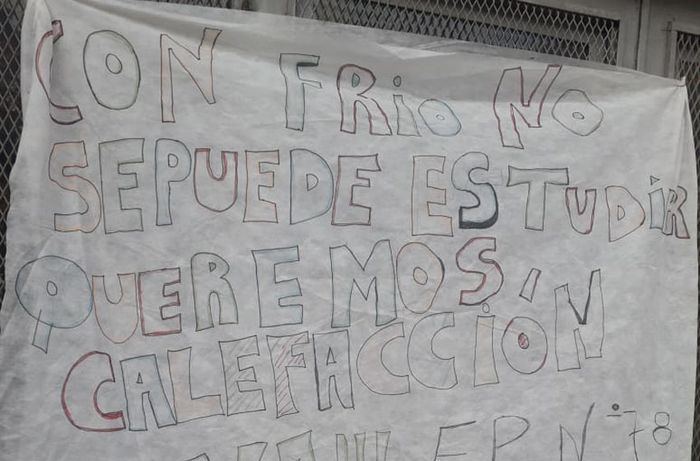 CON FRio NO
SEPUEDE ESTUDiR
QUEREMOS
CALEFACCIÓN
EP N° 78